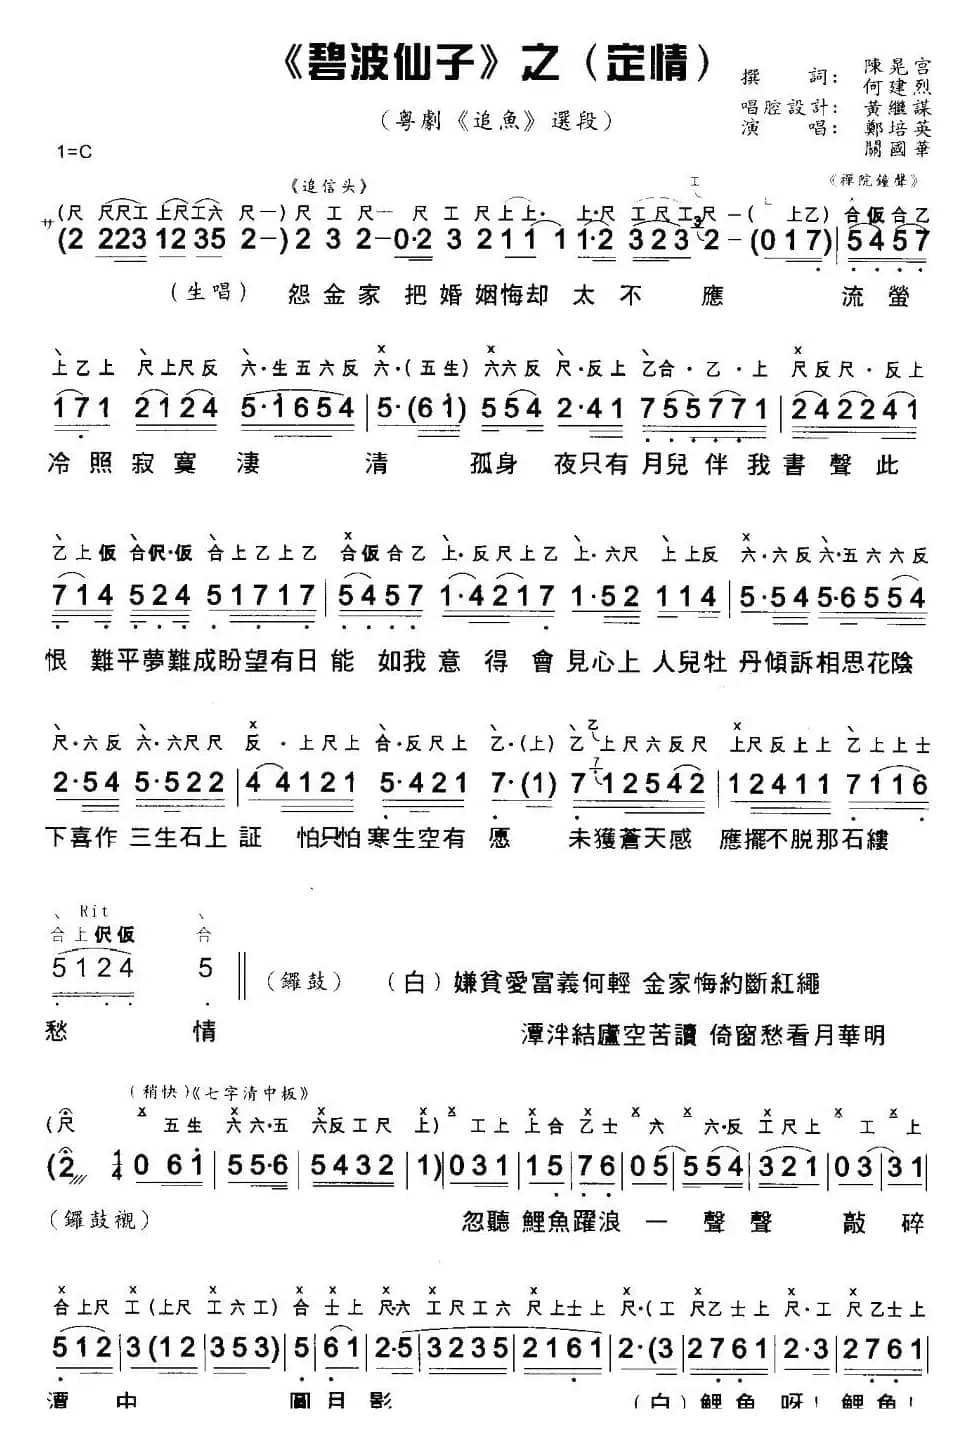 《碧波仙子》之（定情）
（粵劇《追魚》選段）
撰　詞：陳晃宮
何建烈
唱腔設計：黃繼謀
演　唱：鄭培英
關國華
1=C
《追信头》　工　《禪院鐘聲》
サ（尺 尺尺工 上尺工六 尺一）尺 工 尺一 尺 工 尺上上· 上·尺 工尺工尺一（上乙）合仮合乙
(2 223 1235 2-) 2 3 2-0·2 3 211 11·2 323 3 2-(017)|5457
（生唱）怨金家把婚姻悔却太不應　流螢
上乙上 尺上尺反 六·生五六反 六·（五生）六六反 尺·反上 乙合·乙·上 尺反尺·反上
171 2124 5·1654|5·(61) 554 2·41 755771|242241
冷照寂寞淒　清　孤身　夜只有月兒伴我書聲此
乙上仮 合伬·仮 合上乙上乙 合仮合乙 上·反尺上乙 上·六尺 上上反 六·六反六·五六六反
714 524 51717|5457 1·4217 1·52 114|5·545·6554
恨　難平夢難成盼望有日能　如我意得會見心上人兒牡丹傾訴相思花陰
尺·六反 六·六尺尺 反·上尺上 合·反尺上 乙·（上）乙 乙上尺六反尺 上尺反上上 乙上上士
2·54 5·522|4 4121 5·421 7·(1) 7 7 12542|12411 7116
下喜作三生石上証　怕只怕寒生空有愿　未獲蒼天感　應擺不脱那石縷
Rit
合上伬仮 合
5124 5
（鑼鼓）（白）嫌貧愛富義何輕 金家悔約斷紅繩
愁　情　潭泮結廬空苦讀 倚窗愁看月華明
（稍快）《七字清中板》
（尺 五生 六六·五 六反工尺 上）工上 上合 乙士 六 六·反 工尺上 工 工上
(2 1/4 0 61|55·6|5432|1)|031|15|76|05|554|321|03|31
（鑼鼓襯）忽聽鯉魚躍浪一聲聲　敲碎
合上尺 工（上尺 工六工）合 士上 尺·六 工尺工六 尺上士上 尺·（工 尺乙士上 尺·工 尺乙士上
512|3(12|353)|5|61|2·5|3235|2161|2·(3|2761|2·3|2761|
潭　中　圓月影　（白）鯉魚呀！鯉魚！